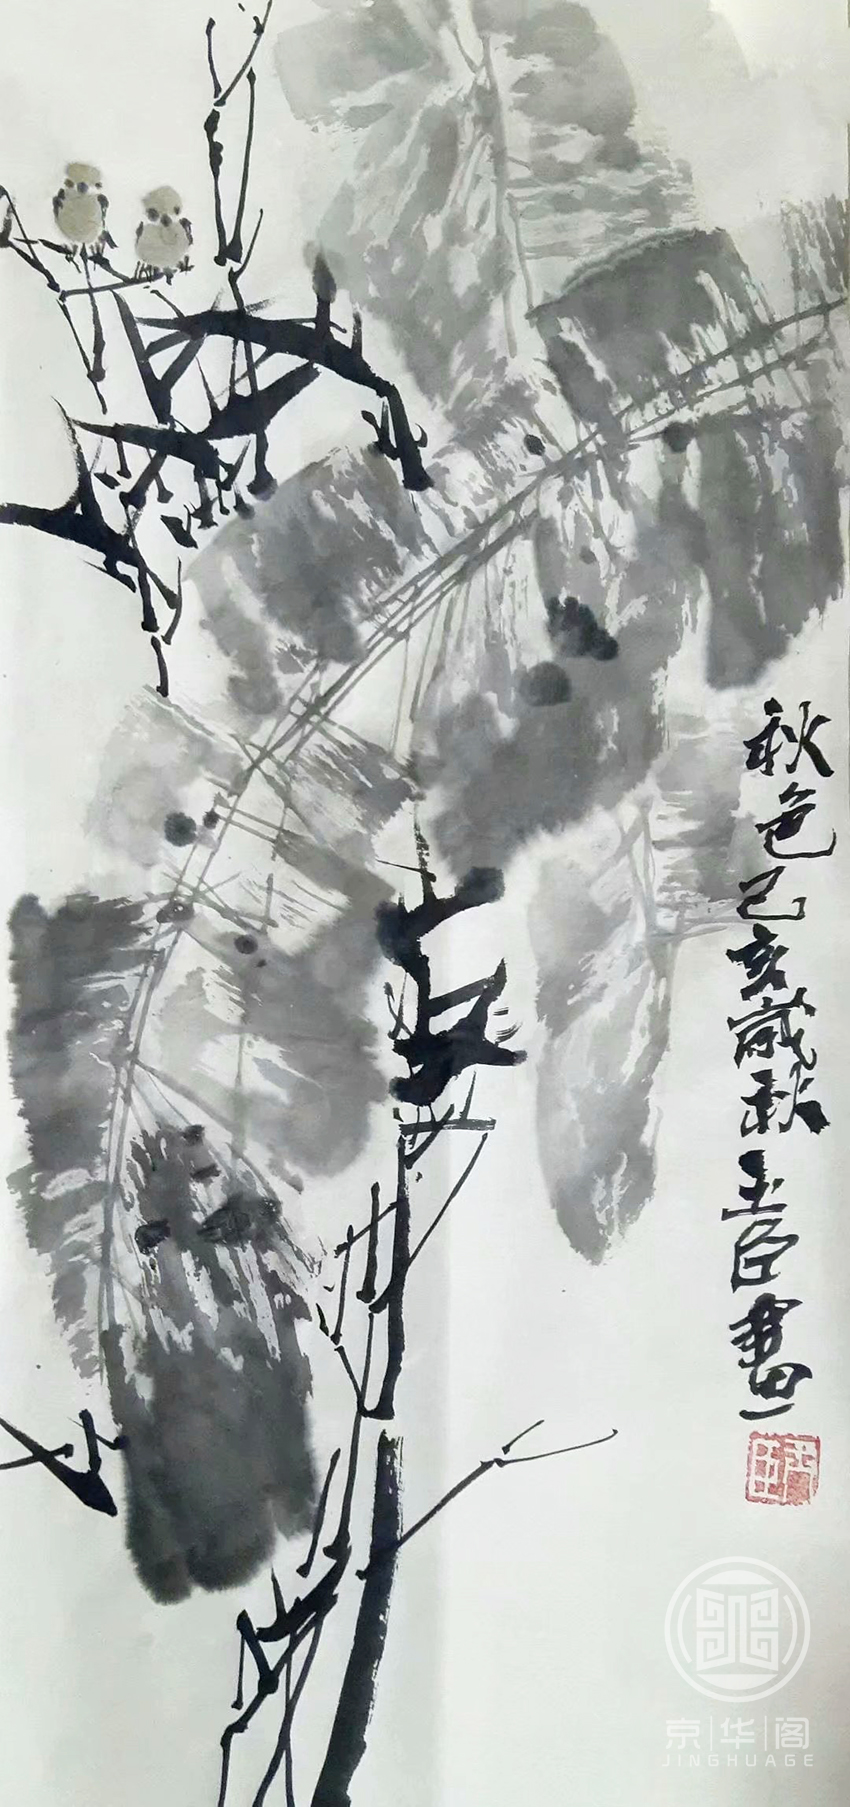 秋色己亥歲秋玉臣畫
京华阁
JINGHUAGE